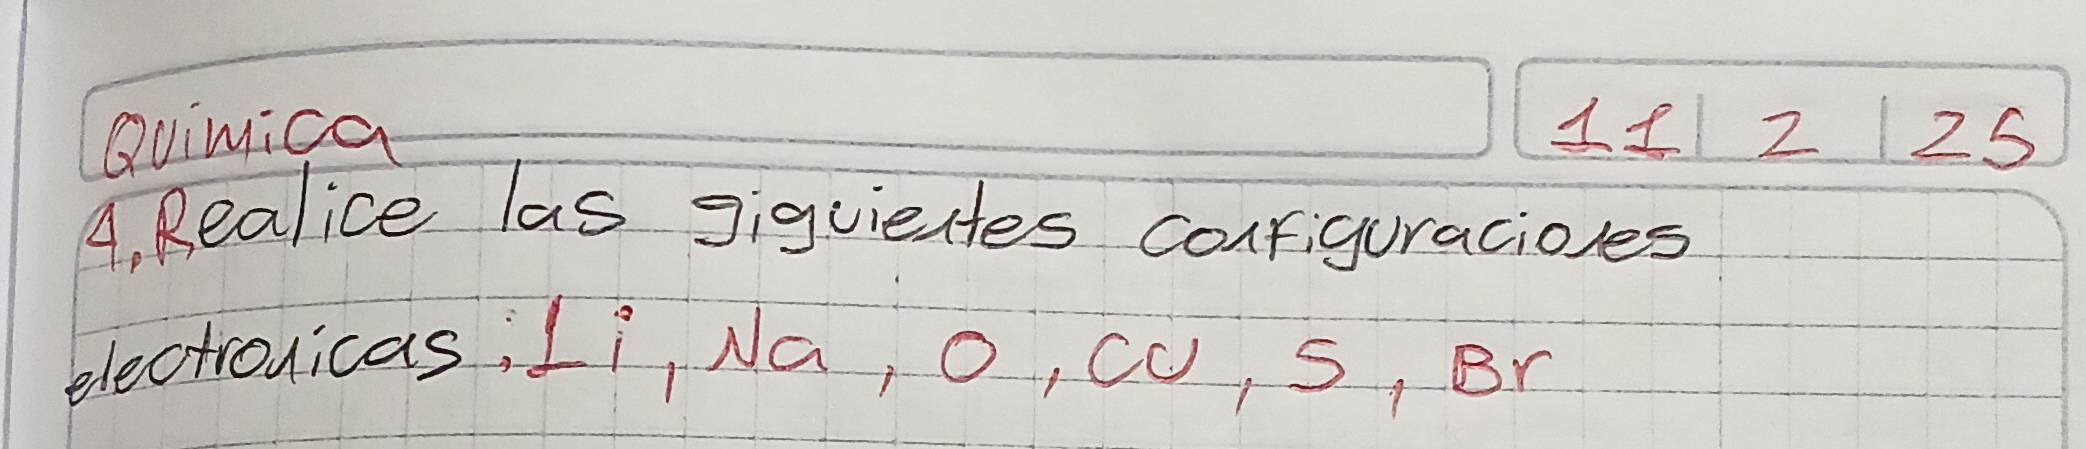 Quimica
11 2 25
4. Realice las siguientes configuraciones
electronicas; Li, Na, O, CU, S, Br